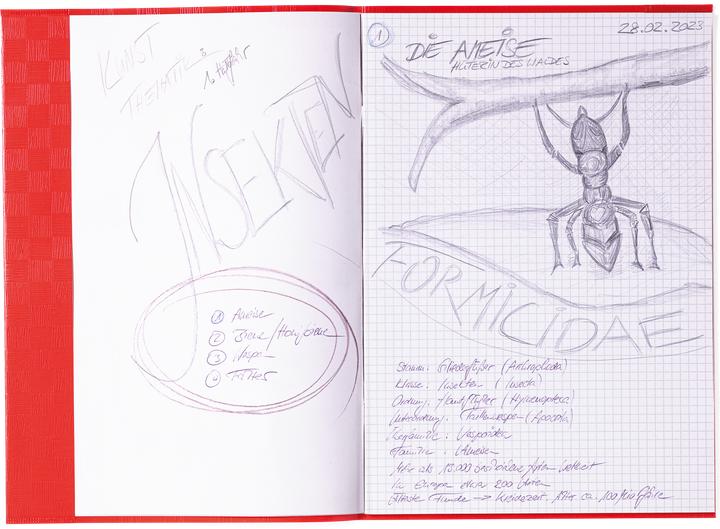 KUNST
THEMATIK:
INSEKTEN
1 Ameise
2 Biene/Honigbiene
3 Wespe
4
1
28.02.2023
DIE AMEISE
HÜTERIN DES WALDES
FORMICIDAE
Stamm: Gliederfüßer (Arthropoda)
Klasse: Insekten (Insecta)
Ordnung: Hautflügler (Hymenoptera)
Unterordnung: Taillenwespen (Apocrita)
Familie: Ameisen
Mehr als 13.000 Arten weltweit
In Europa etwa 200 Arten
Älteste Funde → Kreidezeit, Alter ca. 100 Mio Jahre